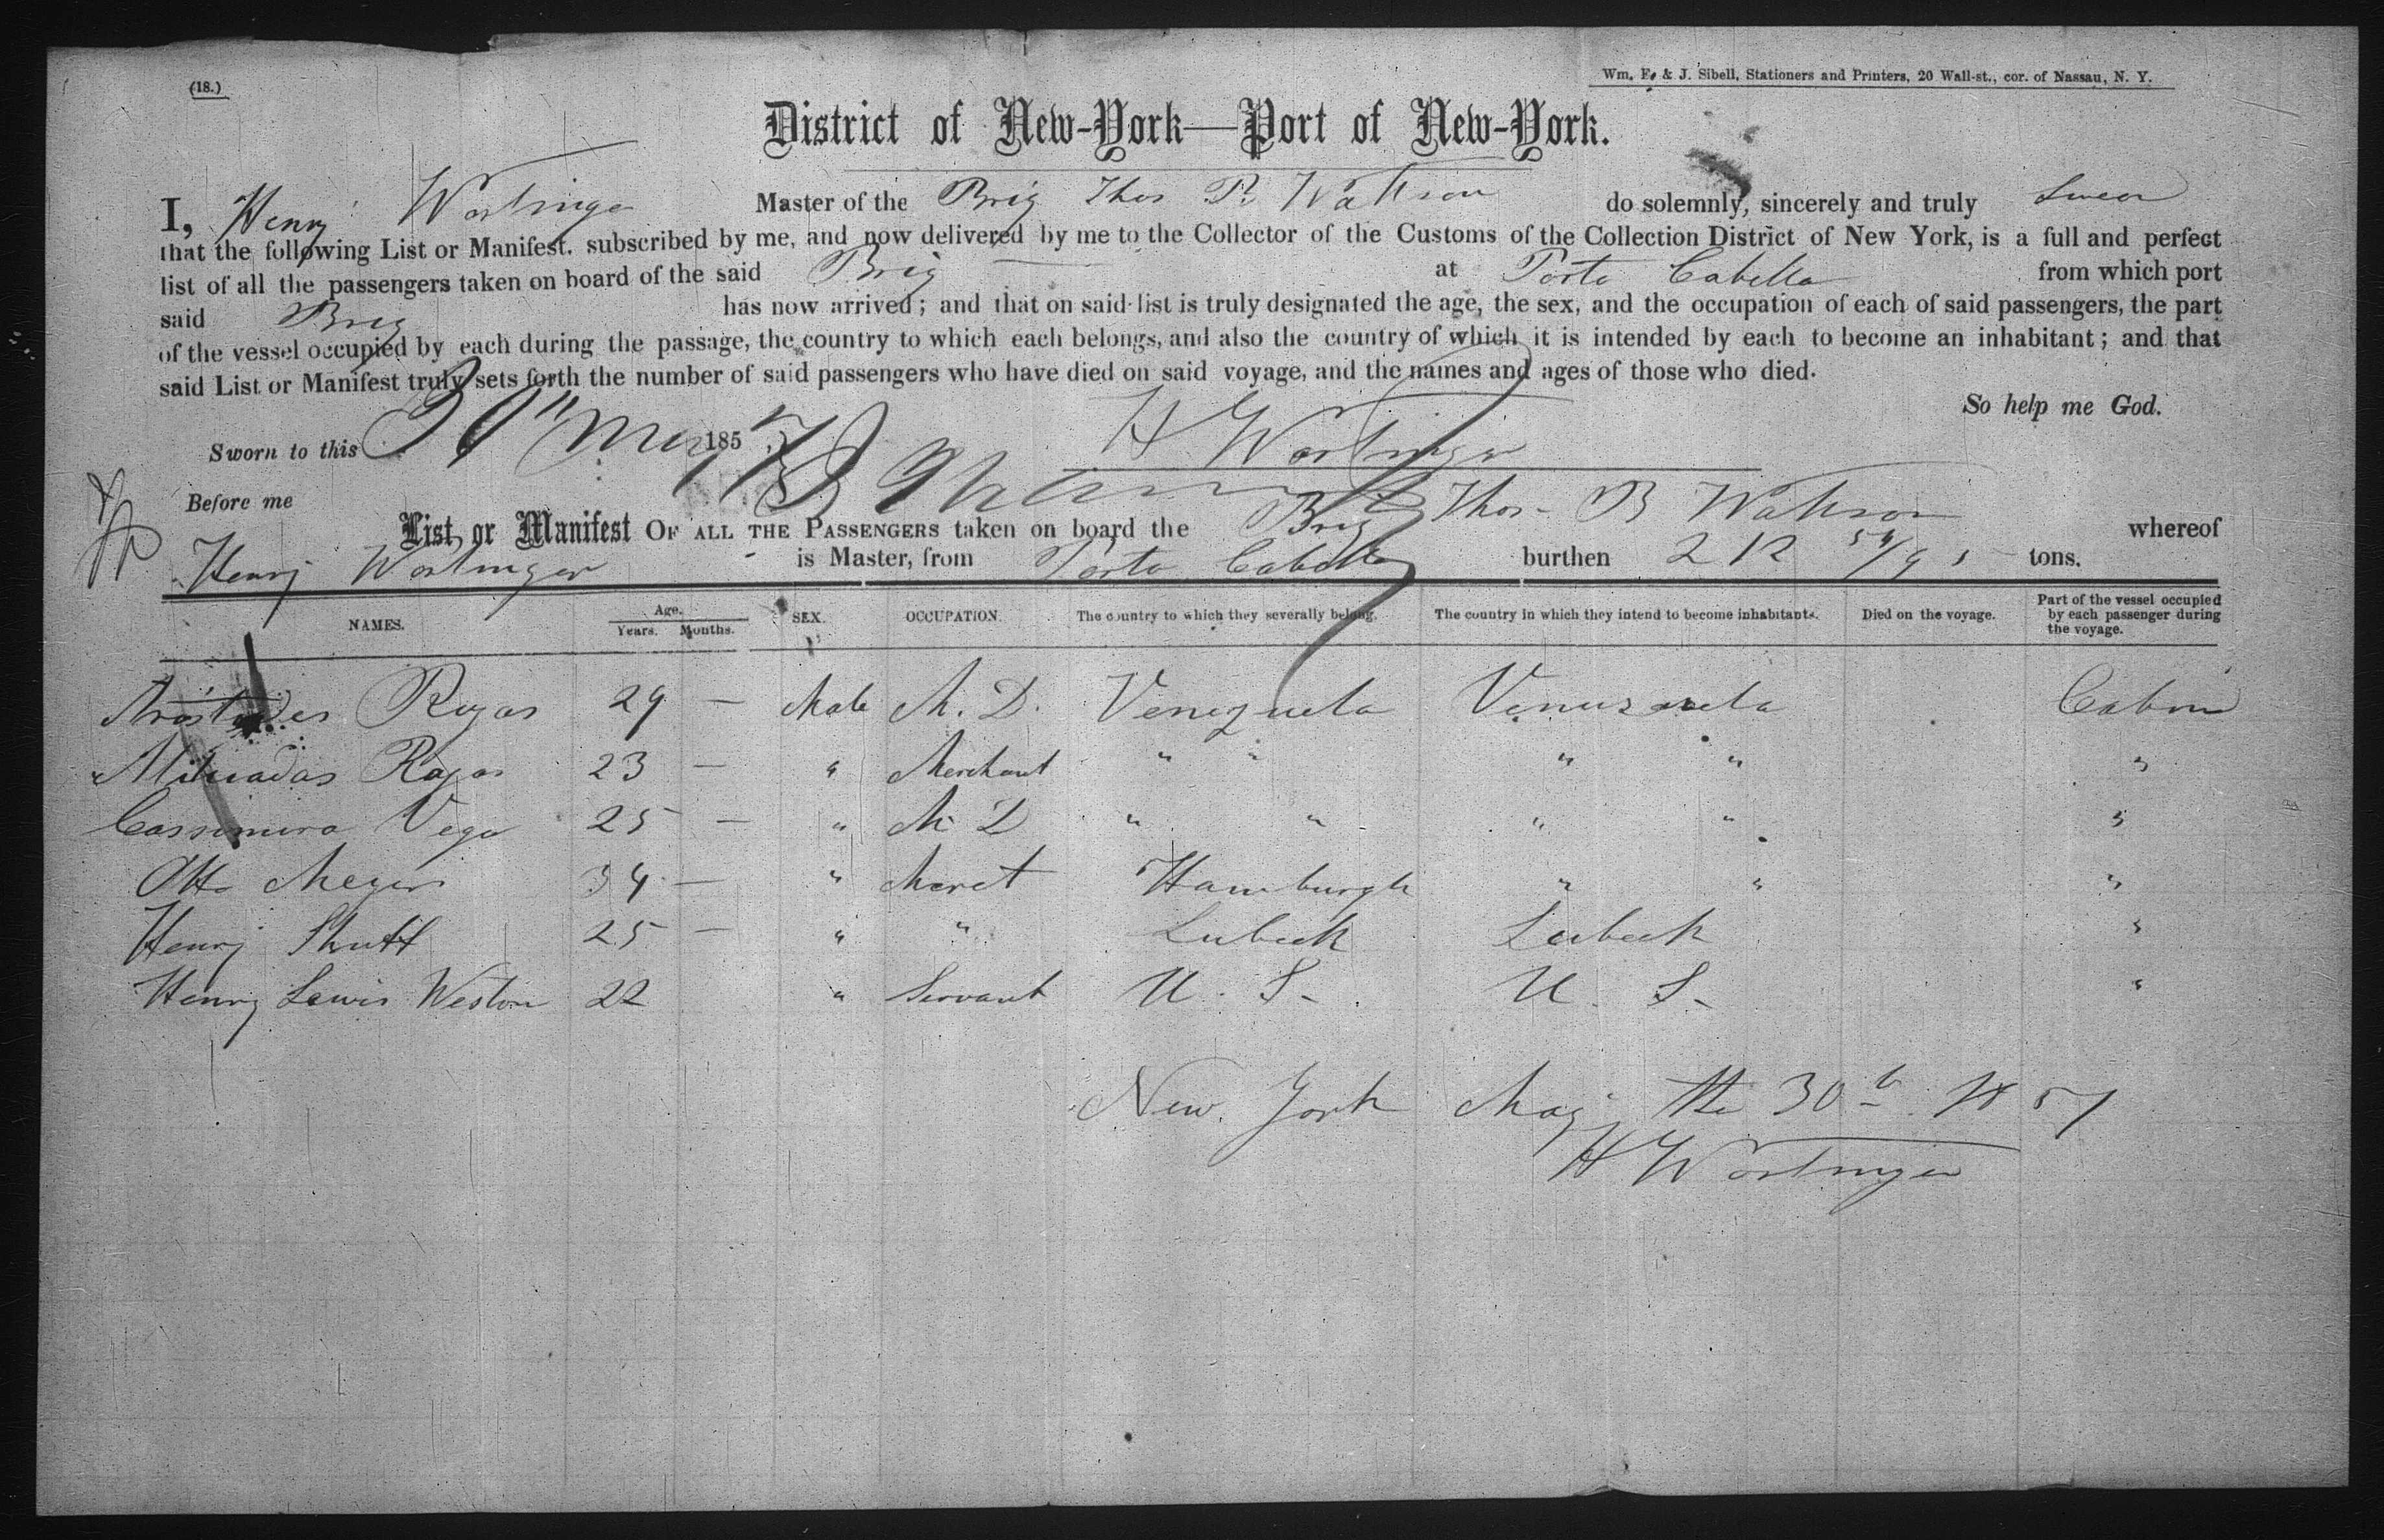 (18.)
Wm. E. & J. Sibell, Stationers and Printers, 20 Wall-st., cor. of Nassau, N. Y.
District of New-York—Port of New-York.
I, Henry Wortinger Master of the Brig Thos B Watson do solemnly, sincerely and truly Swear
that the following List or Manifest. subscribed by me, and now delivered by me to the Collector of the Customs of the Collection District of New York, is a full and perfect
list of all the passengers taken on board of the said Brig at Porto Cabello from which port
said Brig has now arrived; and that on said list is truly designated the age, the sex, and the occupation of each of said passengers, the part
of the vessel occupied by each during the passage, the country to which each belongs, and also the country of which it is intended by each to become an inhabitant; and that
said List or Manifest truly sets forth the number of said passengers who have died on said voyage, and the names and ages of those who died.
So help me God.
Sworn to this 30" May 1857 H Wortinger
Before me
List or Manifest OF ALL THE PASSENGERS taken on board the Brig Thos B Watson whereof
Henry Wortinger is Master, from Porto Cabello burthen 212 54/95 tons.
NAMES. Age. Years. Months. SEX. OCCUPATION. The country to which they severally belong. The country in which they intend to become inhabitants. Died on the voyage. Part of the vessel occupied by each passenger during the voyage.
Aristides Rojas 29 — Male M. D. Venezuela Venuzuela Cabin
Rojas 23 — " Merchant " " " " "
Cassimira Vega 25 — " M D " " " " "
Otto Meyer 34 — " Merct Hamburgh " " "
Henry Shutt 25 — " " Lubeck Lubeck "
Henry Lewis Weston 22 " Servant U. S. U. S. "
New York May the 30th 1857
H Wortinger